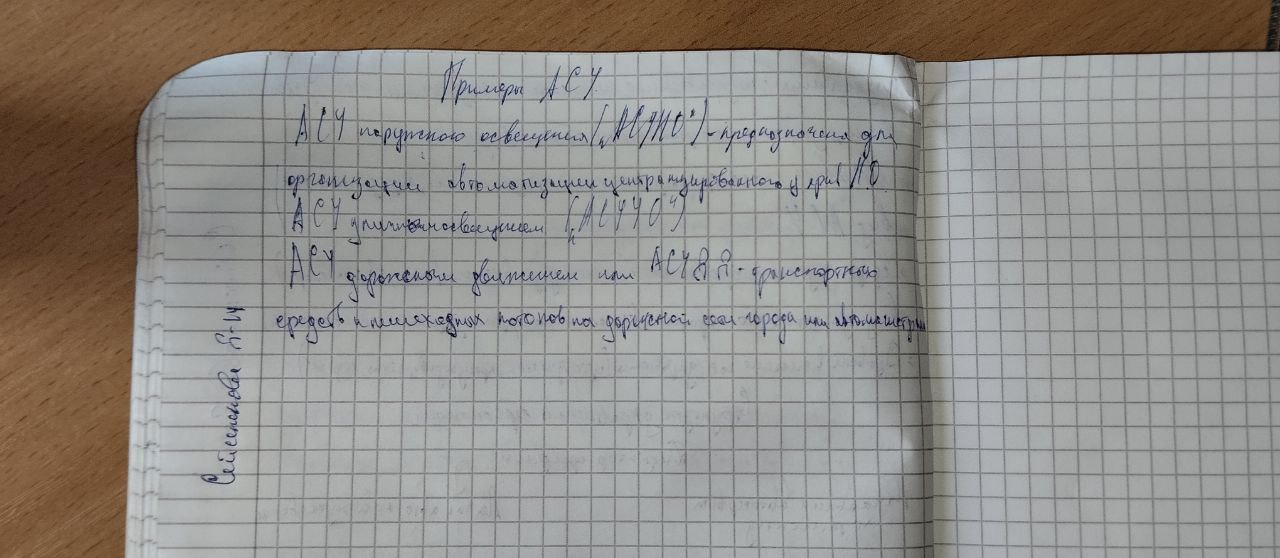 Примеры АСУ
АСУ наружного освещения („АСУНО") - предназначена для
организации автоматизации централизированного управ НО
АСУ уличным освещением („АСУУО")
АСУ дорожным движением или АСУДД - транспортных
средств и пешеходных потоков на дорожной сети города или автомагистрали
Д-14